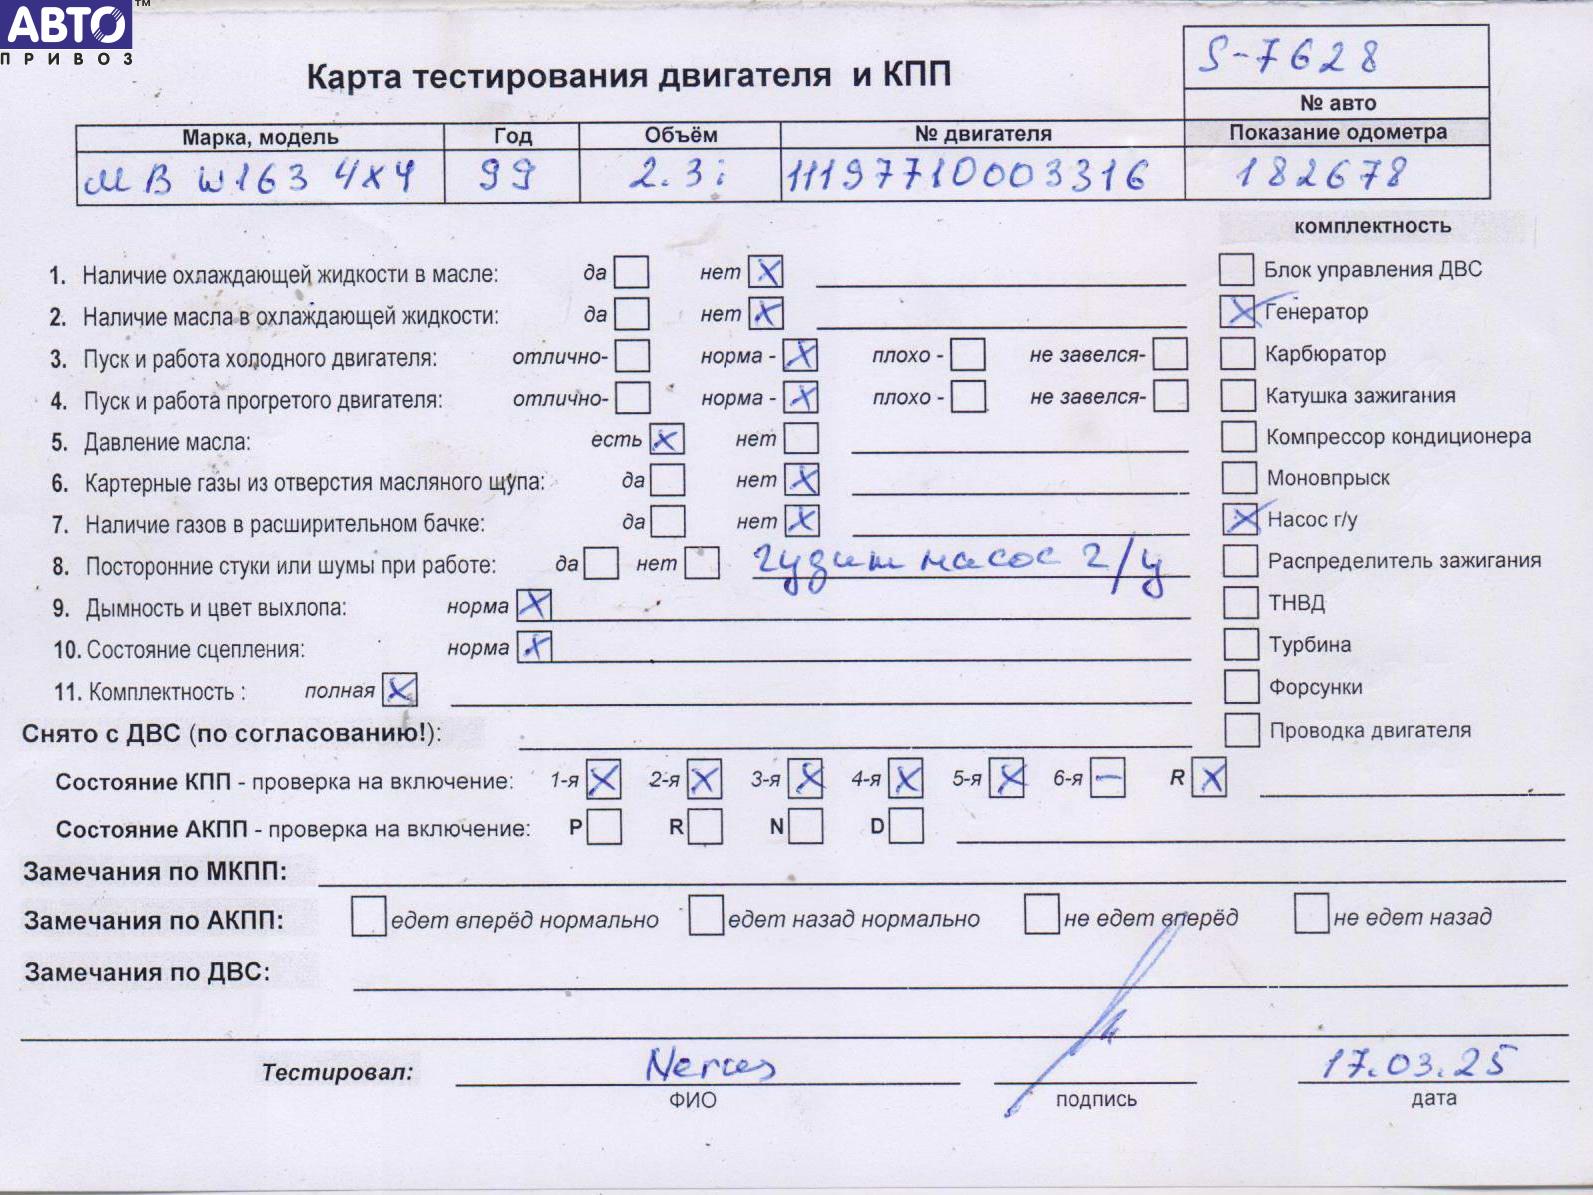 АВТО™
ПРИВОЗ
Карта тестирования двигателя и КПП
S-7628
№ авто
Марка, модель Год Объём № двигателя Показание одометра
МВ W163 4x4 99 2.3i 11197710003316 182678
комплектность
1. Наличие охлаждающей жидкости в масле: да нет X Блок управления ДВС
2. Наличие масла в охлаждающей жидкости: да нет X X Генератор
3. Пуск и работа холодного двигателя: отлично- норма - X плохо - не завелся- Карбюратор
4. Пуск и работа прогретого двигателя: отлично- норма - X плохо - не завелся- Катушка зажигания
5. Давление масла: есть X нет Компрессор кондиционера
6. Картерные газы из отверстия масляного щупа: да нет X Моновпрыск
7. Наличие газов в расширительном бачке: да нет X X Насос г/у
8. Посторонние стуки или шумы при работе: да нет гудит насос г/у Распределитель зажигания
9. Дымность и цвет выхлопа: норма X ТНВД
10. Состояние сцепления: норма X Турбина
11. Комплектность : полная X Форсунки
Снято с ДВС (по согласованию!): Проводка двигателя
Состояние КПП - проверка на включение: 1-я X 2-я X 3-я X 4-я X 5-я X 6-я — R X
Состояние АКПП - проверка на включение: P R N D
Замечания по МКПП:
Замечания по АКПП: едет вперёд нормально едет назад нормально не едет вперёд не едет назад
Замечания по ДВС:
Тестировал: 17.03.25
ФИО подпись дата